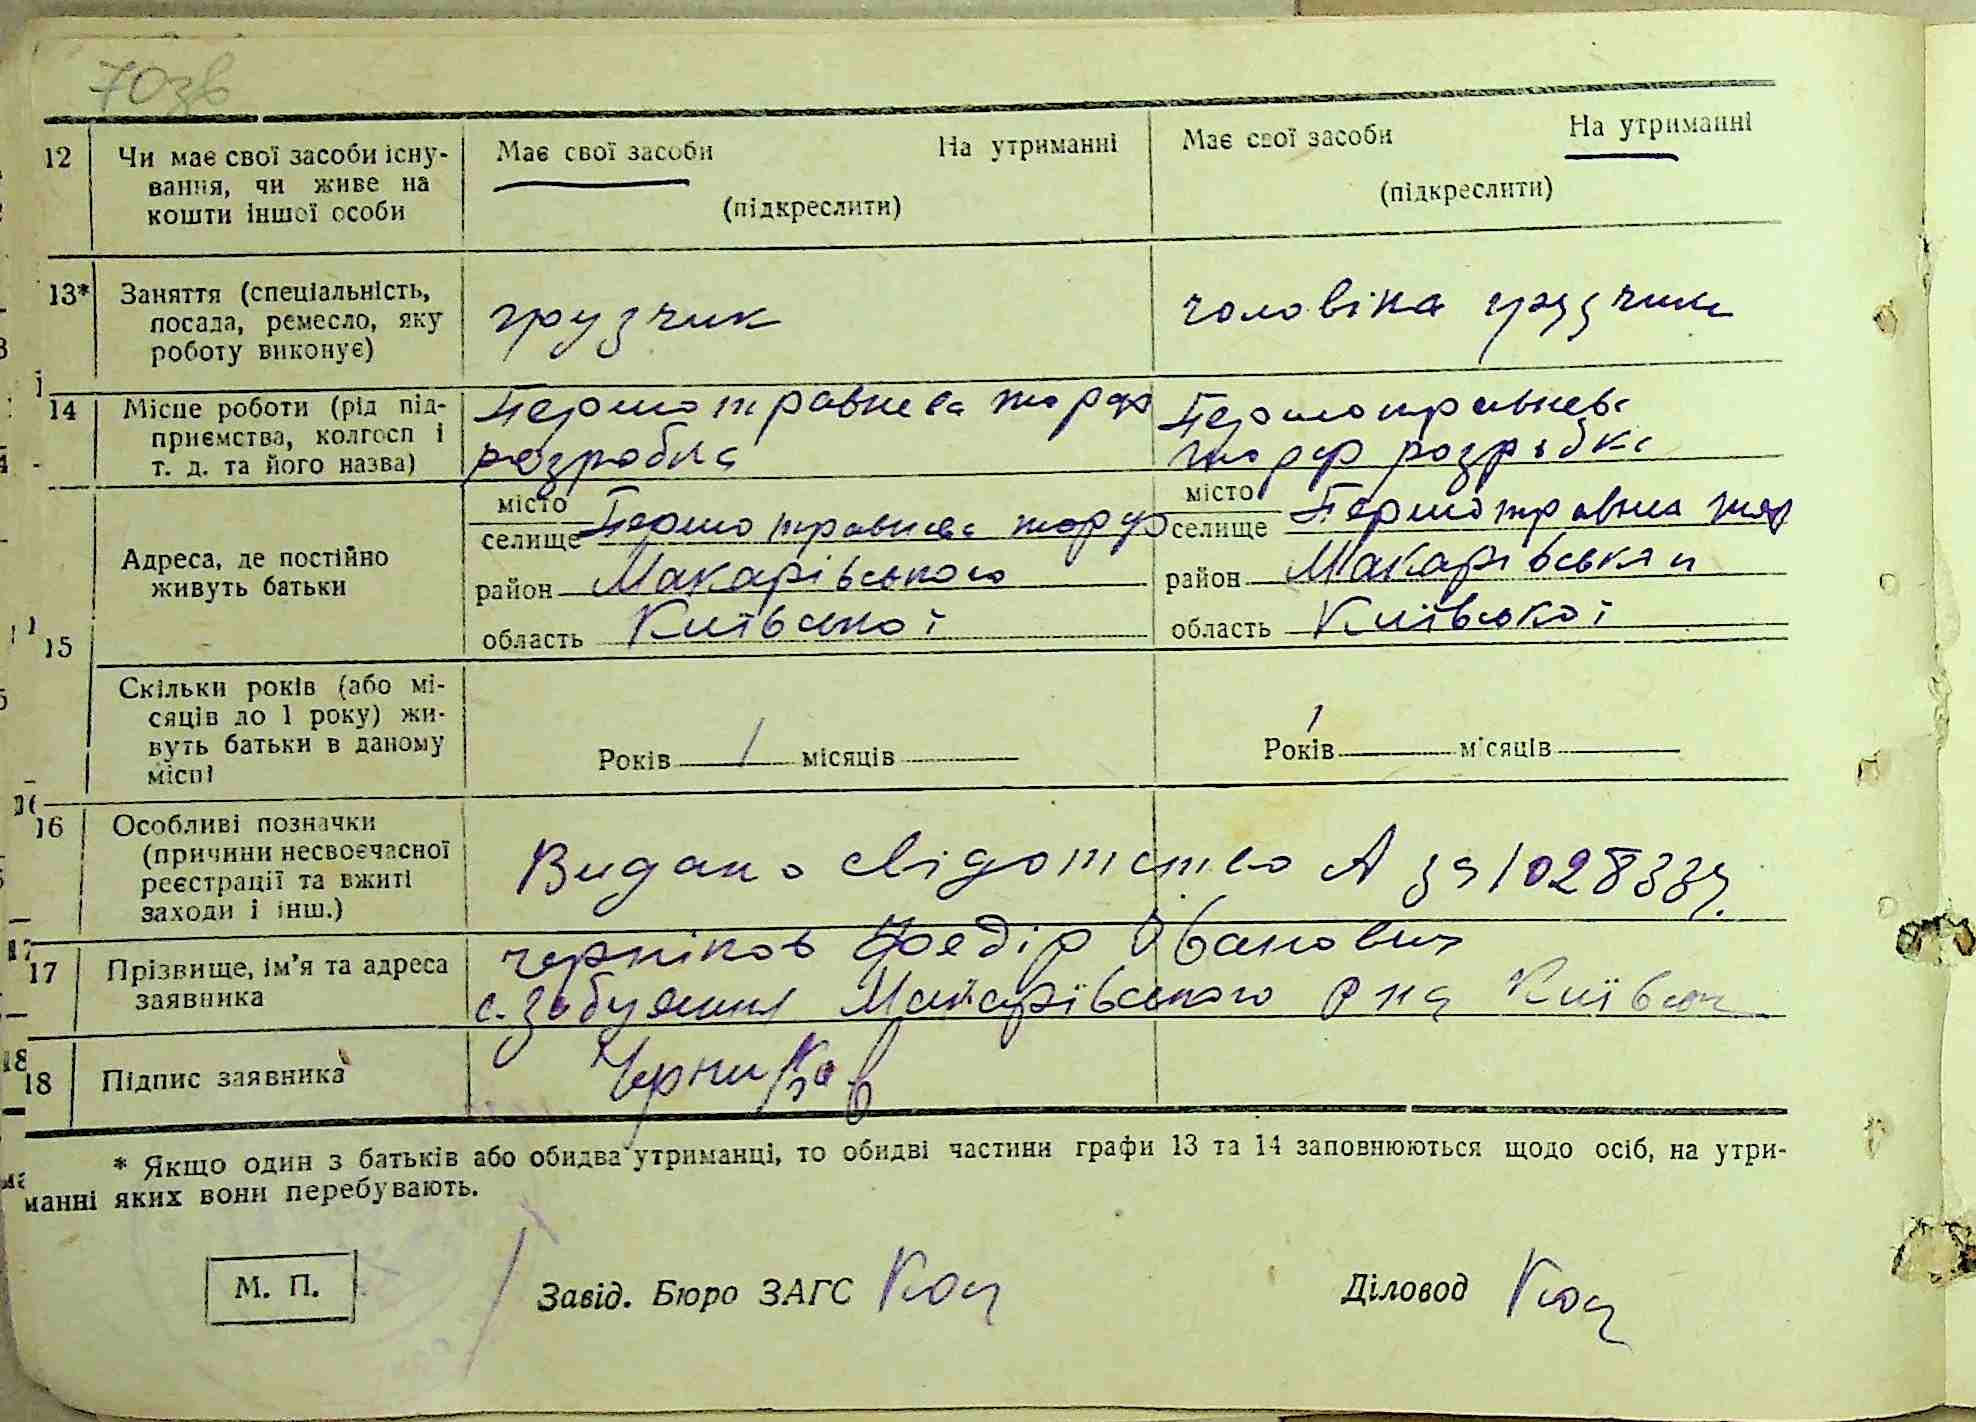 70зв
12 Чи має свої засоби існу- Має свої засоби На утриманні Має свої засоби На утриманні
вання, чи живе на
кошти іншої особи (підкреслити) (підкреслити)
13* Заняття (спеціальність,
посада, ремесло, яку грузчик чоловіка грузчик
роботу виконує)
14 Місце роботи (рід під- Першотравнева торф Першотравнева
приємства, колгосп і
т. д. та його назва) розробка торф розробка
15 Адреса, де постійно
живуть батьки
місто
селище Першотравнева торф
район Макарівського
область Київської
місто
селище Першотравнева тор
район Макарівський
область Київської
Скільки років (або мі-
сяців до 1 року) жи-
вуть батьки в даному
місці
Років 1 місяців
Років 1 місяців
16 Особливі позначки
(причини несвоєчасної
реєстрації та вжиті
заходи і інш.)
Видано свідотство А
17 Прізвище, ім'я та адреса
заявника
черніков Федір Іванович
с. Забуяння Макарівського р на Київської
18 Підпис заявника Черников
* Якщо один з батьків або обидва утриманці, то обидві частини графи 13 та 14 заповнюються щодо осіб, на утри-
манні яких вони перебувають.
М. П. Завід. Бюро ЗАГС Діловод